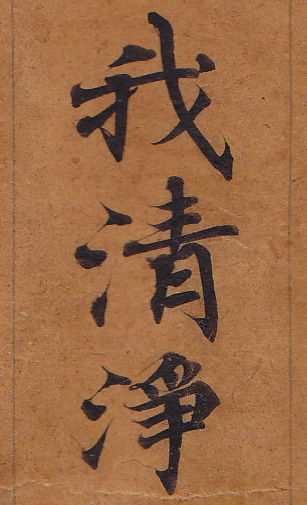 我清淨